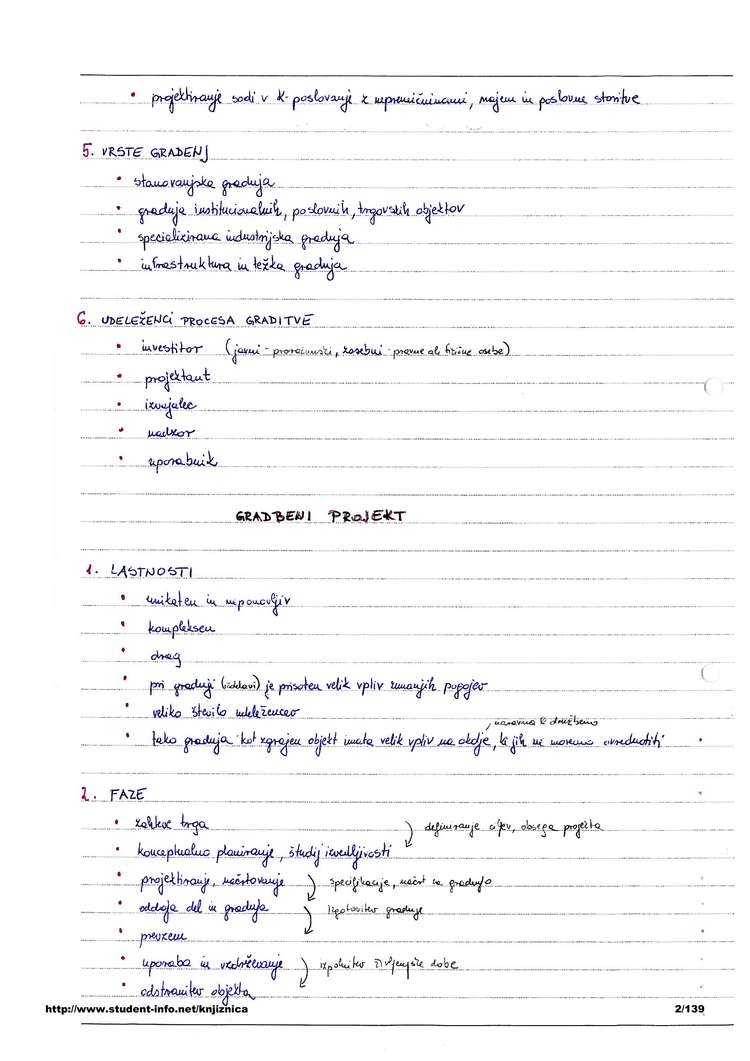 • projektiranje sodi v K-poslovanje z nepremičninami, najem in poslovne storitve
5. VRSTE GRADENJ
• stanovanjska gradnja
• gradnja institucionalnih, poslovnih, trgovskih objektov
• specializirana industrijska gradnja
• infrastruktura in težka gradnja
6. UDELEŽENCI PROCESA GRADITVE
• investitor (javni - proračunski, zasebni - pravne ali fizične osebe)
• projektant
• izvajalec
• nadzor
• uporabnik
GRADBENI PROJEKT
1. LASTNOSTI
• unikaten in neponovljiv
• kompleksen
• drag
• pri gradnji (izdelavi) je prisoten velik vpliv zunanjih pogojev
• veliko število udeležencev
, naravno & družbeno
• tako gradnja kot zgrajen objekt imata velik vpliv na okolje, ki jih ne moremo ovrednotiti
2. FAZE
• zahteve trga
definiranje ciljev, obsega projekta
• konceptualno planiranje, študij izvedljivosti
• projektiranje, načrtovanje
specifikacije, načrt za gradnjo
• oddaja del in gradnja
zgotovitev gradnje
• prevzem
• uporaba in vzdrževanje
izpolnitev življenjske dobe
• odstranitev objekta
http://www.student-info.net/knjiznica
2/139